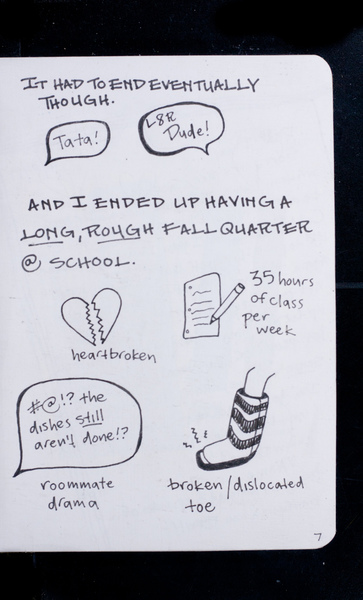 IT HAD TO END EVENTUALLY
THOUGH.
Tata!
L8R
Dude!
AND I ENDED UP HAVING A
LONG, ROUGH FALL QUARTER
@ SCHOOL.
heartbroken
35 hours
of class
per
week
#@!? the
dishes still
aren't done!?
roommate
drama
broken/dislocated
toe
7